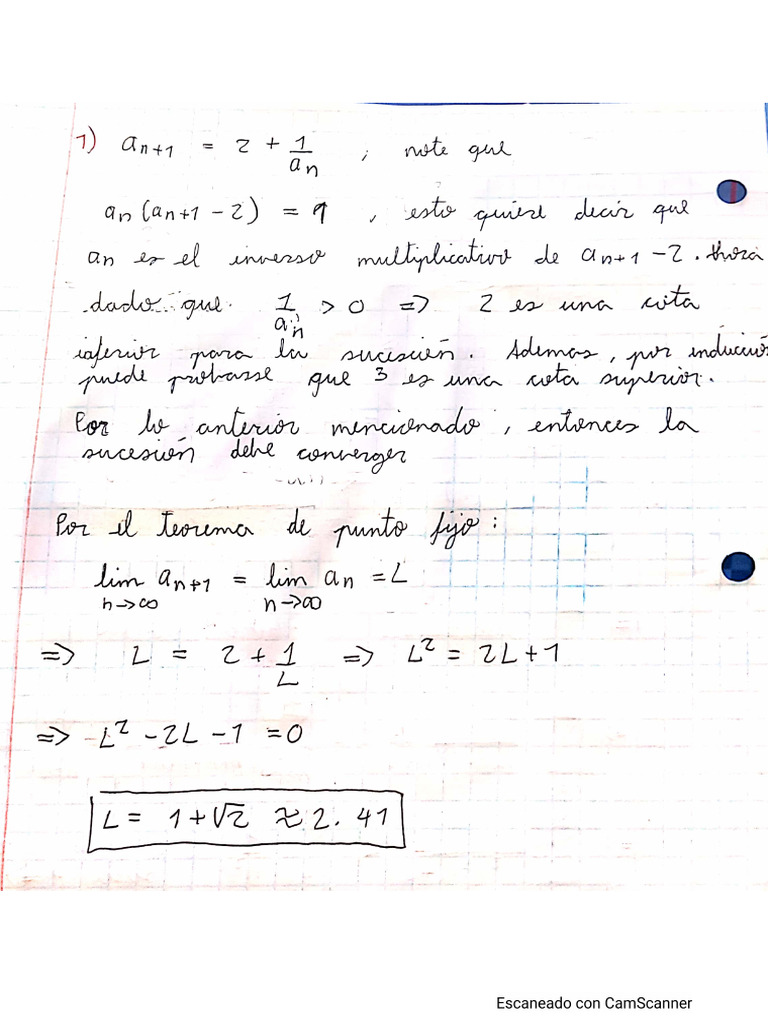 1) a_{n+1} = 2 + 1/a_n ; note que
a_n (a_{n+1} - 2) = 1 , esto quiere decir que
a_n es el inverso multiplicativo de a_{n+1} - 2. Ahora
dado que 1/a_n > 0 => 2 es una cota
inferior para la sucesión. Ademas, por inducción
puede probarse que 3 es una cota superior.
Por lo anterior mencionado, entonces la
sucesión debe converger
Por el teorema de punto fijo:
lim_{n→∞} a_{n+1} = lim_{n→∞} a_n = L
=> L = 2 + 1/L => L² = 2L + 1
=> L² - 2L - 1 = 0
L = 1 + √2 ≈ 2.41
Escaneado con CamScanner